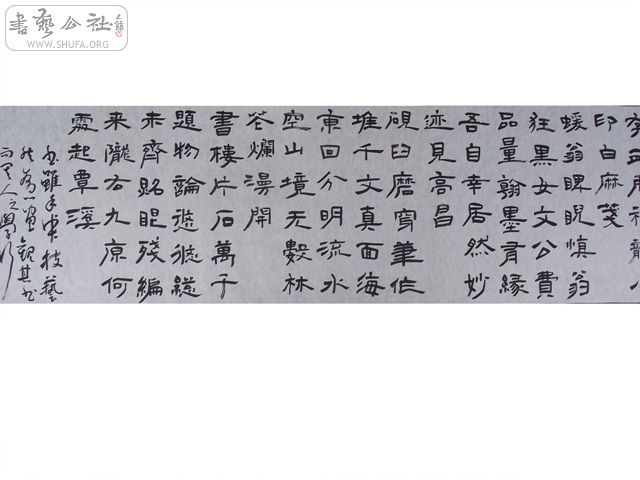 書藝公社
WWW.SHUFA.ORG
印白麻箋
蝯翁睥睨慎翁
狂黑女文公費
品量翰墨有緣
吾自幸居然妙
迹見高昌
硯臼磨穿筆作
堆千文真面海
東回分明流水
空山境无數林
花爛漫開
書樓片石萬千
題物論悠悠總
未齊照眼殘編
来隴右九原何
處起覃溪
技藝
觀其
人之學